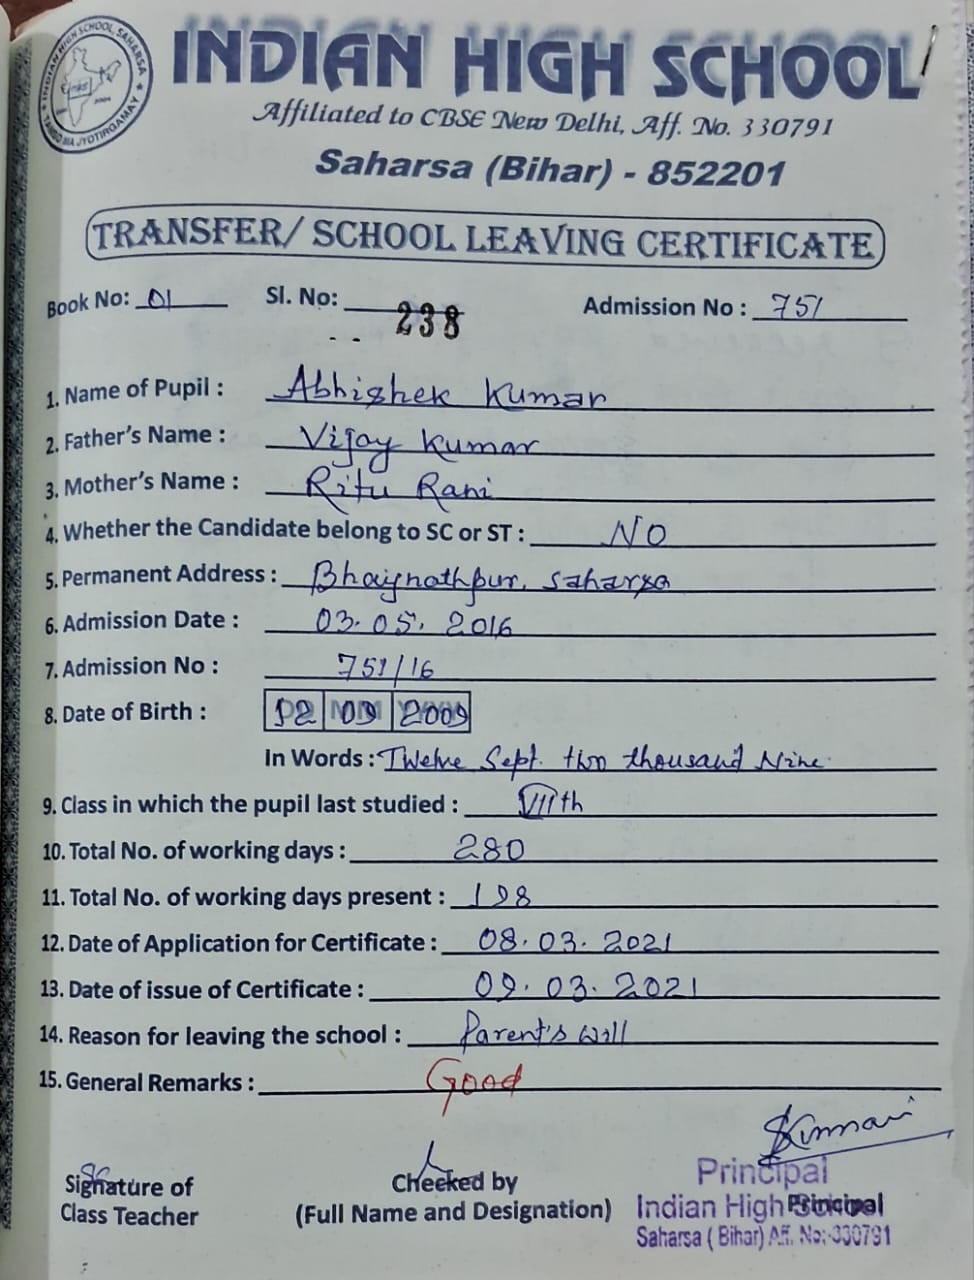 INDIAN HIGH SCHOOL, SAHARSA
TAMSO MA JYOTIRGAMAY
INDIAN HIGH SCHOOL
Affiliated to CBSE New Delhi, Aff. No. 330791
Saharsa (Bihar) - 852201
TRANSFER/ SCHOOL LEAVING CERTIFICATE
Book No: 01 Sl. No: 238 Admission No : 751
1. Name of Pupil : Abhishek Kumar
2. Father's Name : Vijay Kumar
3. Mother's Name : Ritu Rani
4. Whether the Candidate belong to SC or ST : NO
5. Permanent Address : Bhaijnathpur, Saharsa
6. Admission Date : 03.05.2016
7. Admission No : 751/16
8. Date of Birth : 12 09 2009
In Words : Twelve Sept. two thousand Nine.
9. Class in which the pupil last studied : VIIth
10. Total No. of working days : 280
11. Total No. of working days present : 198
12. Date of Application for Certificate : 08.03.2021
13. Date of issue of Certificate : 09.03.2021
14. Reason for leaving the school : Parent's Will
15. General Remarks : Good
SKumari
Signature of Class Teacher
Checked by
(Full Name and Designation)
Principal
Principal
Indian High School
Saharsa ( Bihar) Aff. No:-330791